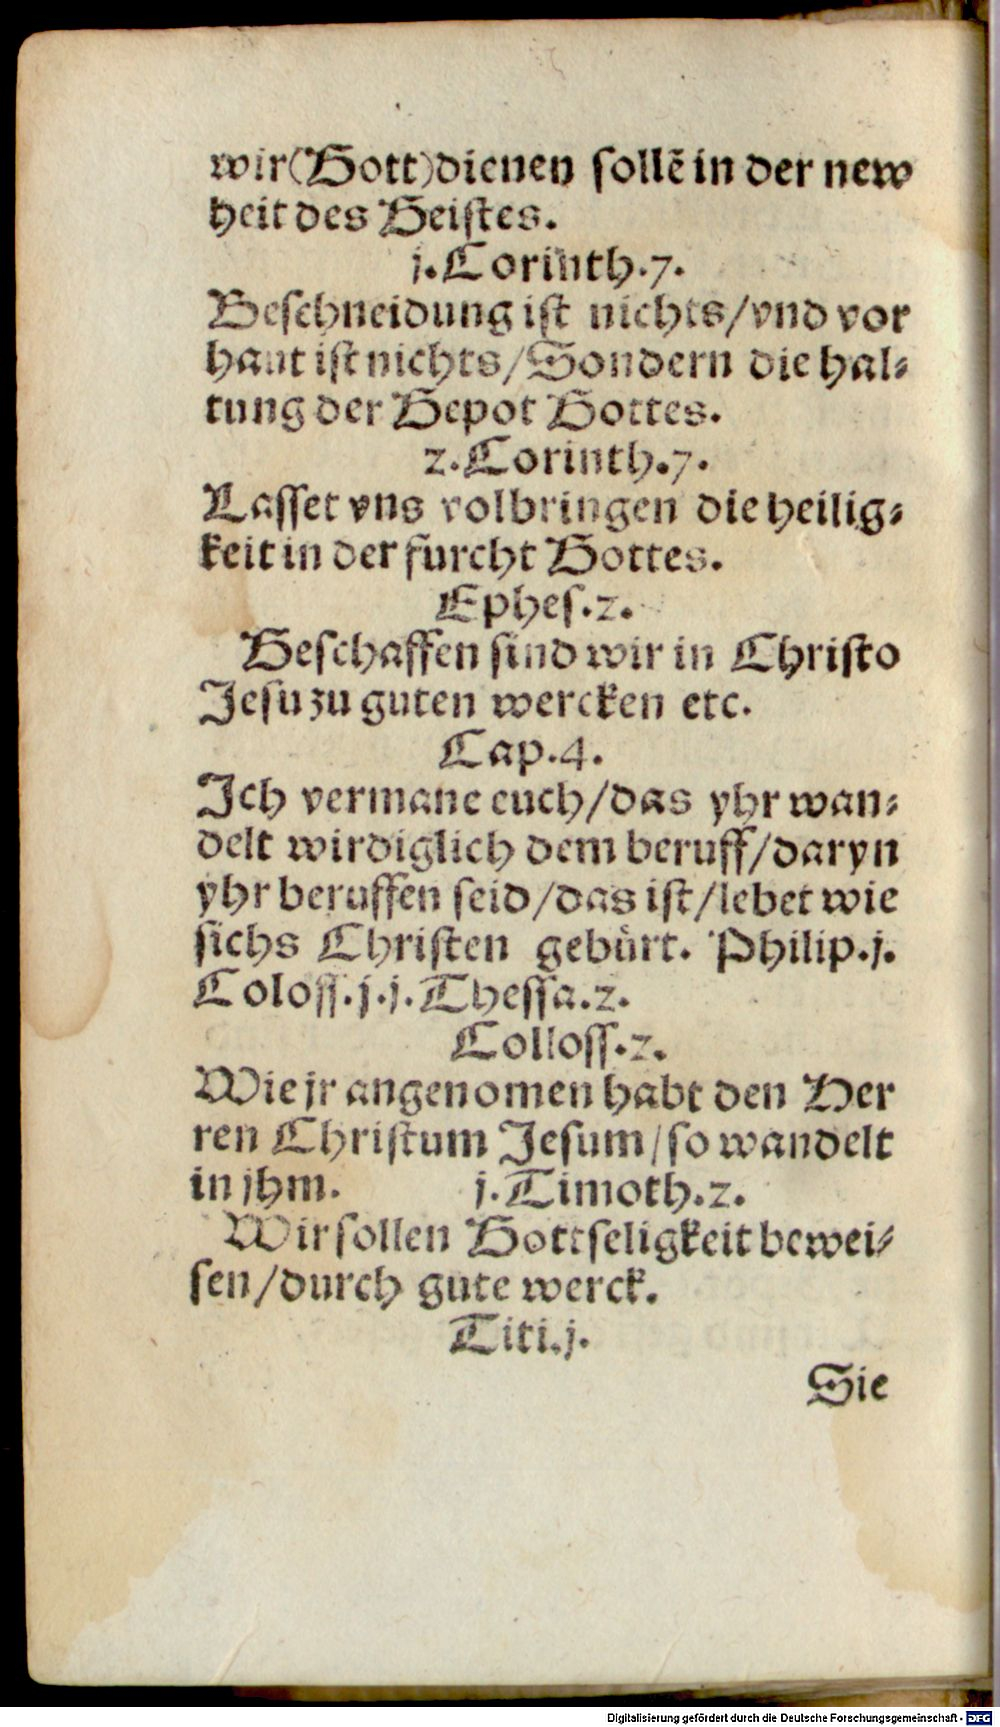 wir(Gott)dienen sollē in der new
heit des Geistes.
j. Corinth. 7.
Beschneidung ist nichts/vnd vor
haut ist nichts/Sondern die hal⸗
tung der Gepot Gottes.
2. Corinth. 7.
Lasset vns volbringen die heilig⸗
keit in der furcht Gottes.
Ephes. 2.
Geschaffen sind wir in Christo
Jesu zu guten wercken etc.
Cap. 4.
Ich vermane euch/das yhr wan⸗
delt wirdiglich dem beruff/daryn
yhr beruffen seid/das ist/lebet wie
sichs Christen gebürt. Philip. j.
Coloss. j. j. Thessa. 2.
Colloss. 2.
Wie jr angenomen habt den Her
ren Christum Jesum/so wandelt
in jhm. j. Timoth. 2.
Wir sollen Gottseligkeit bewei⸗
sen/durch gute werck.
Titi. j.
Sie
Digitalisierung gefördert durch die Deutsche Forschungsgemeinschaft - DFG